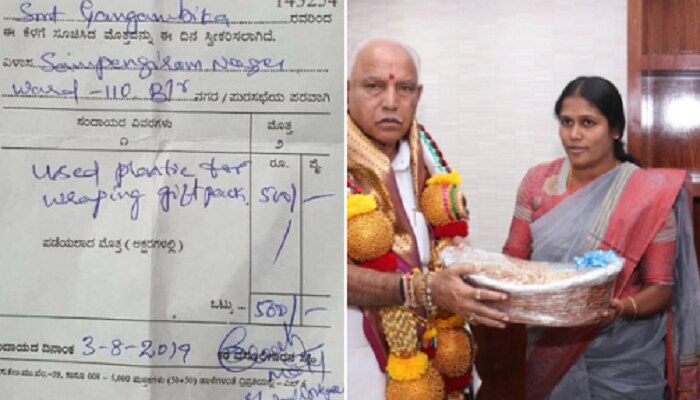 143254
Smt Gangambika ರವರಿಂದ
ಈ ಕೆಳಗೆ ಸೂಚಿಸಿದ ಮೊತ್ತವನ್ನು ಈ ದಿನ ಸ್ವೀಕರಿಸಲಾಗಿದೆ.
ವಿಳಾಸ
Ward - 110 B'lr ನಗರ / ಪುರಸಭೆಯ ಪರವಾಗಿ
ಸಂದಾಯದ ವಿವರಗಳು ಮೊತ್ತ
೧ ೨
ರೂ. ಪೈ.
used plastic for
wraping gift pack 500/-
ಪಡೆಯಲಾದ ಮೊತ್ತ ( ಅಕ್ಷರಗಳಲ್ಲಿ )
ಒಟ್ಟು 500/-
ಸಂದಾಯದ ದಿನಾಂಕ 3-8-2019